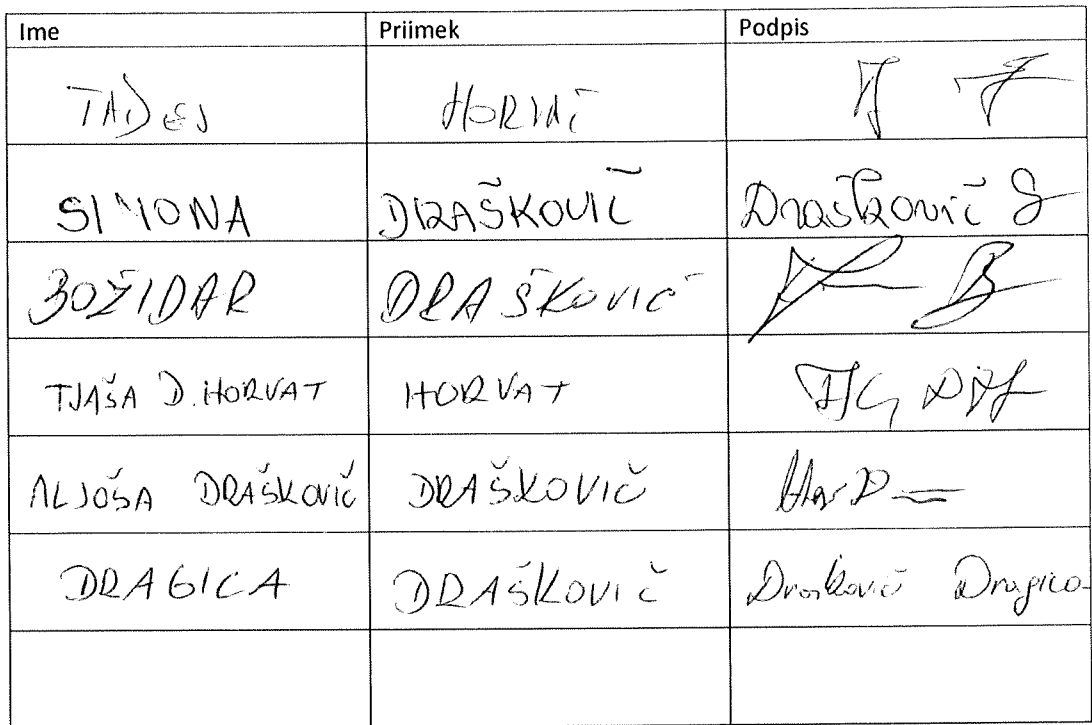 Ime Priimek Podpis
TADEJ
SIMONA DRAŠKOVIČ Draškovič S
BOŽIDAR DRAŠKOVIČ
TJAŠA D. HORVAT HORVAT
ALJOŠA DRAŠKOVIČ DRAŠKOVIČ
DRAGICA DRAŠKOVIČ Draškovič Dragica